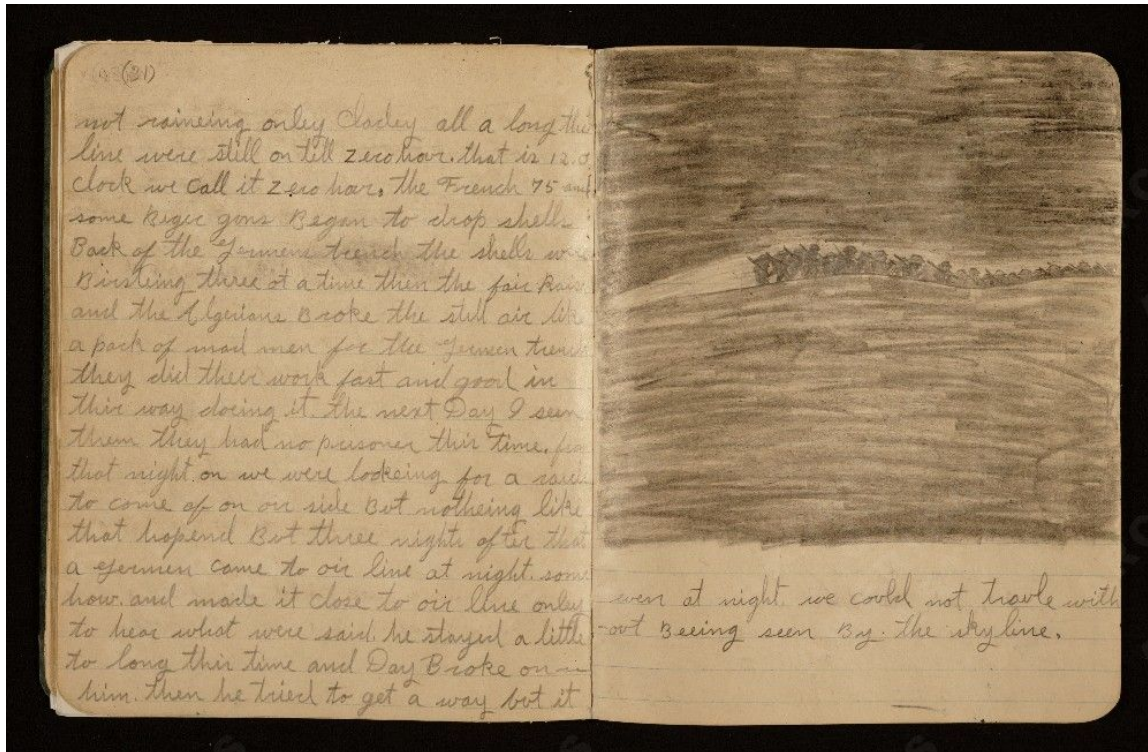 (21)
not raineing onley Clodey all a long the
line were still on till Zero hour. that is 12.0
clock we Call it Zero hour. the French 75 and
some Biger guns Began to drop shells
Back of the Germens trench the shells were
Birsteing three at a time then the
and the Algerians Broke the still air like
a pack of mad men for the Germen trench
they did their work fast and good in
thir way doeing it. the next Day I seen
them they had no prisoner thir time.
that night on we were lookeing for a raid
to come of on our side But notheing like
that hapend But three nights after that
a Germen came to oir line at night. some
how. and made it close to oir line onley
to hear what were said. he stayed a little
to long thir time and Day Broke on
him. then he tried to get a way but it
even at night we could not travle with
-out Beeing seen By. the skyline.